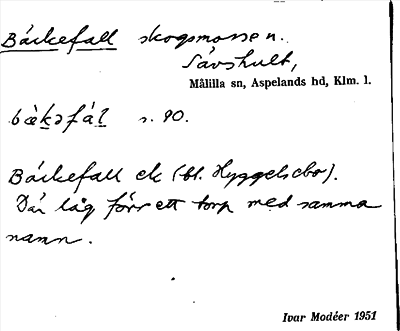 Bäckefall skogsmossen.
Sävshult,
Målilla sn, Aspelands hd, Klm. l.
bæ̀kəfál s. 90.
Bäckefall ek (bl. Hyggelsbo).
Där låg förr ett torp med samma
namn.
Ivar Modéer 1951